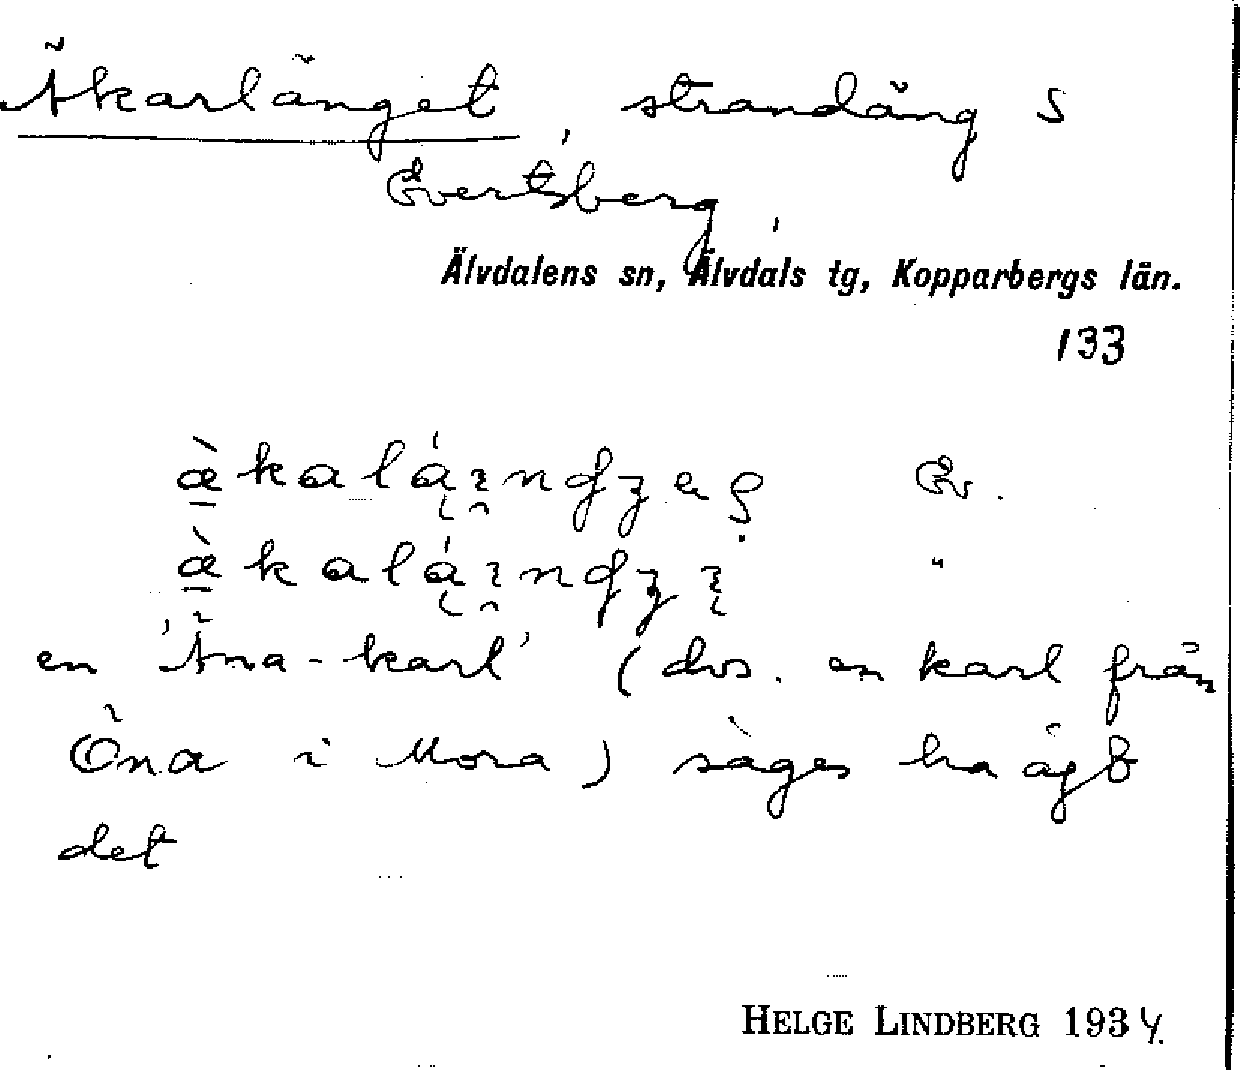 Äkarlänget, strandäng S
Evertsberg,
Älvdalens sn, Älvdals tg, Kopparbergs län.
133
Ev.
"
en 'Äna-karl' (dvs. en karl från
Öna i Mora) säges ha ägt
det
HELGE LINDBERG 1934.